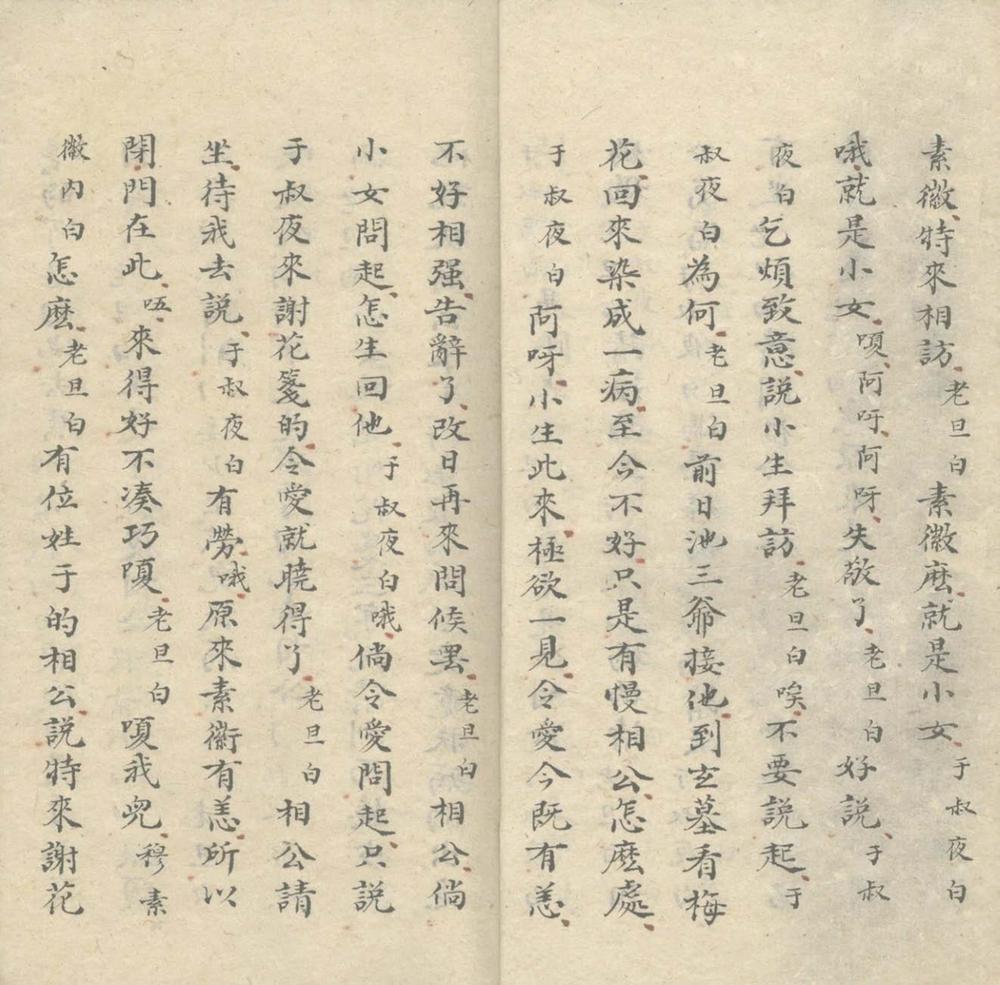 素徽特來相訪老旦白素徽庅就是小女于叔夜白
哦就是小女嗄阿呀阿呀失敬了老旦白好說于叔
夜白乞煩致意說小生拜訪老旦白唉不要說起于
叔夜白為何老旦白前日池三爺接他到玄墓看梅
花回來染成一病至今不好只是有慢相公怎庅處
于叔夜白阿呀小生此來極欲一見令愛今既有恙
不好相强告辭了改日再來問候罷老旦白相公倘
小女問起怎生回他于叔夜白哦倘令愛問起只說
于叔夜來謝花箋的令愛就曉得了老旦白相公請
坐待我去說于叔夜白有勞哦原來素徽有恙所以
閉門在此唔來得好不凑巧嗄老旦白嗄我兒穆素
徽內白怎麽老旦白有位姓于的相公說特來謝花